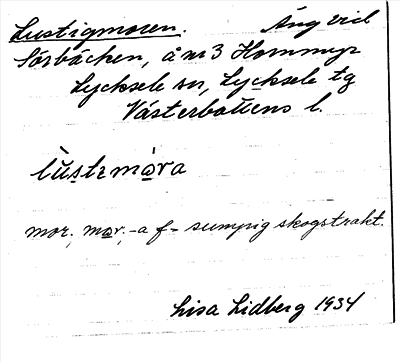 Lustigmoren. Äng vid
Sörbäcken, å nr 3 Hornmyr
Lycksele sn, Lycksele tg
Västerbottens l.
lùstɩmǫ̀ra
mor, mǫr, -a f- sumpig skogstrakt.
Lisa Lidberg 1934